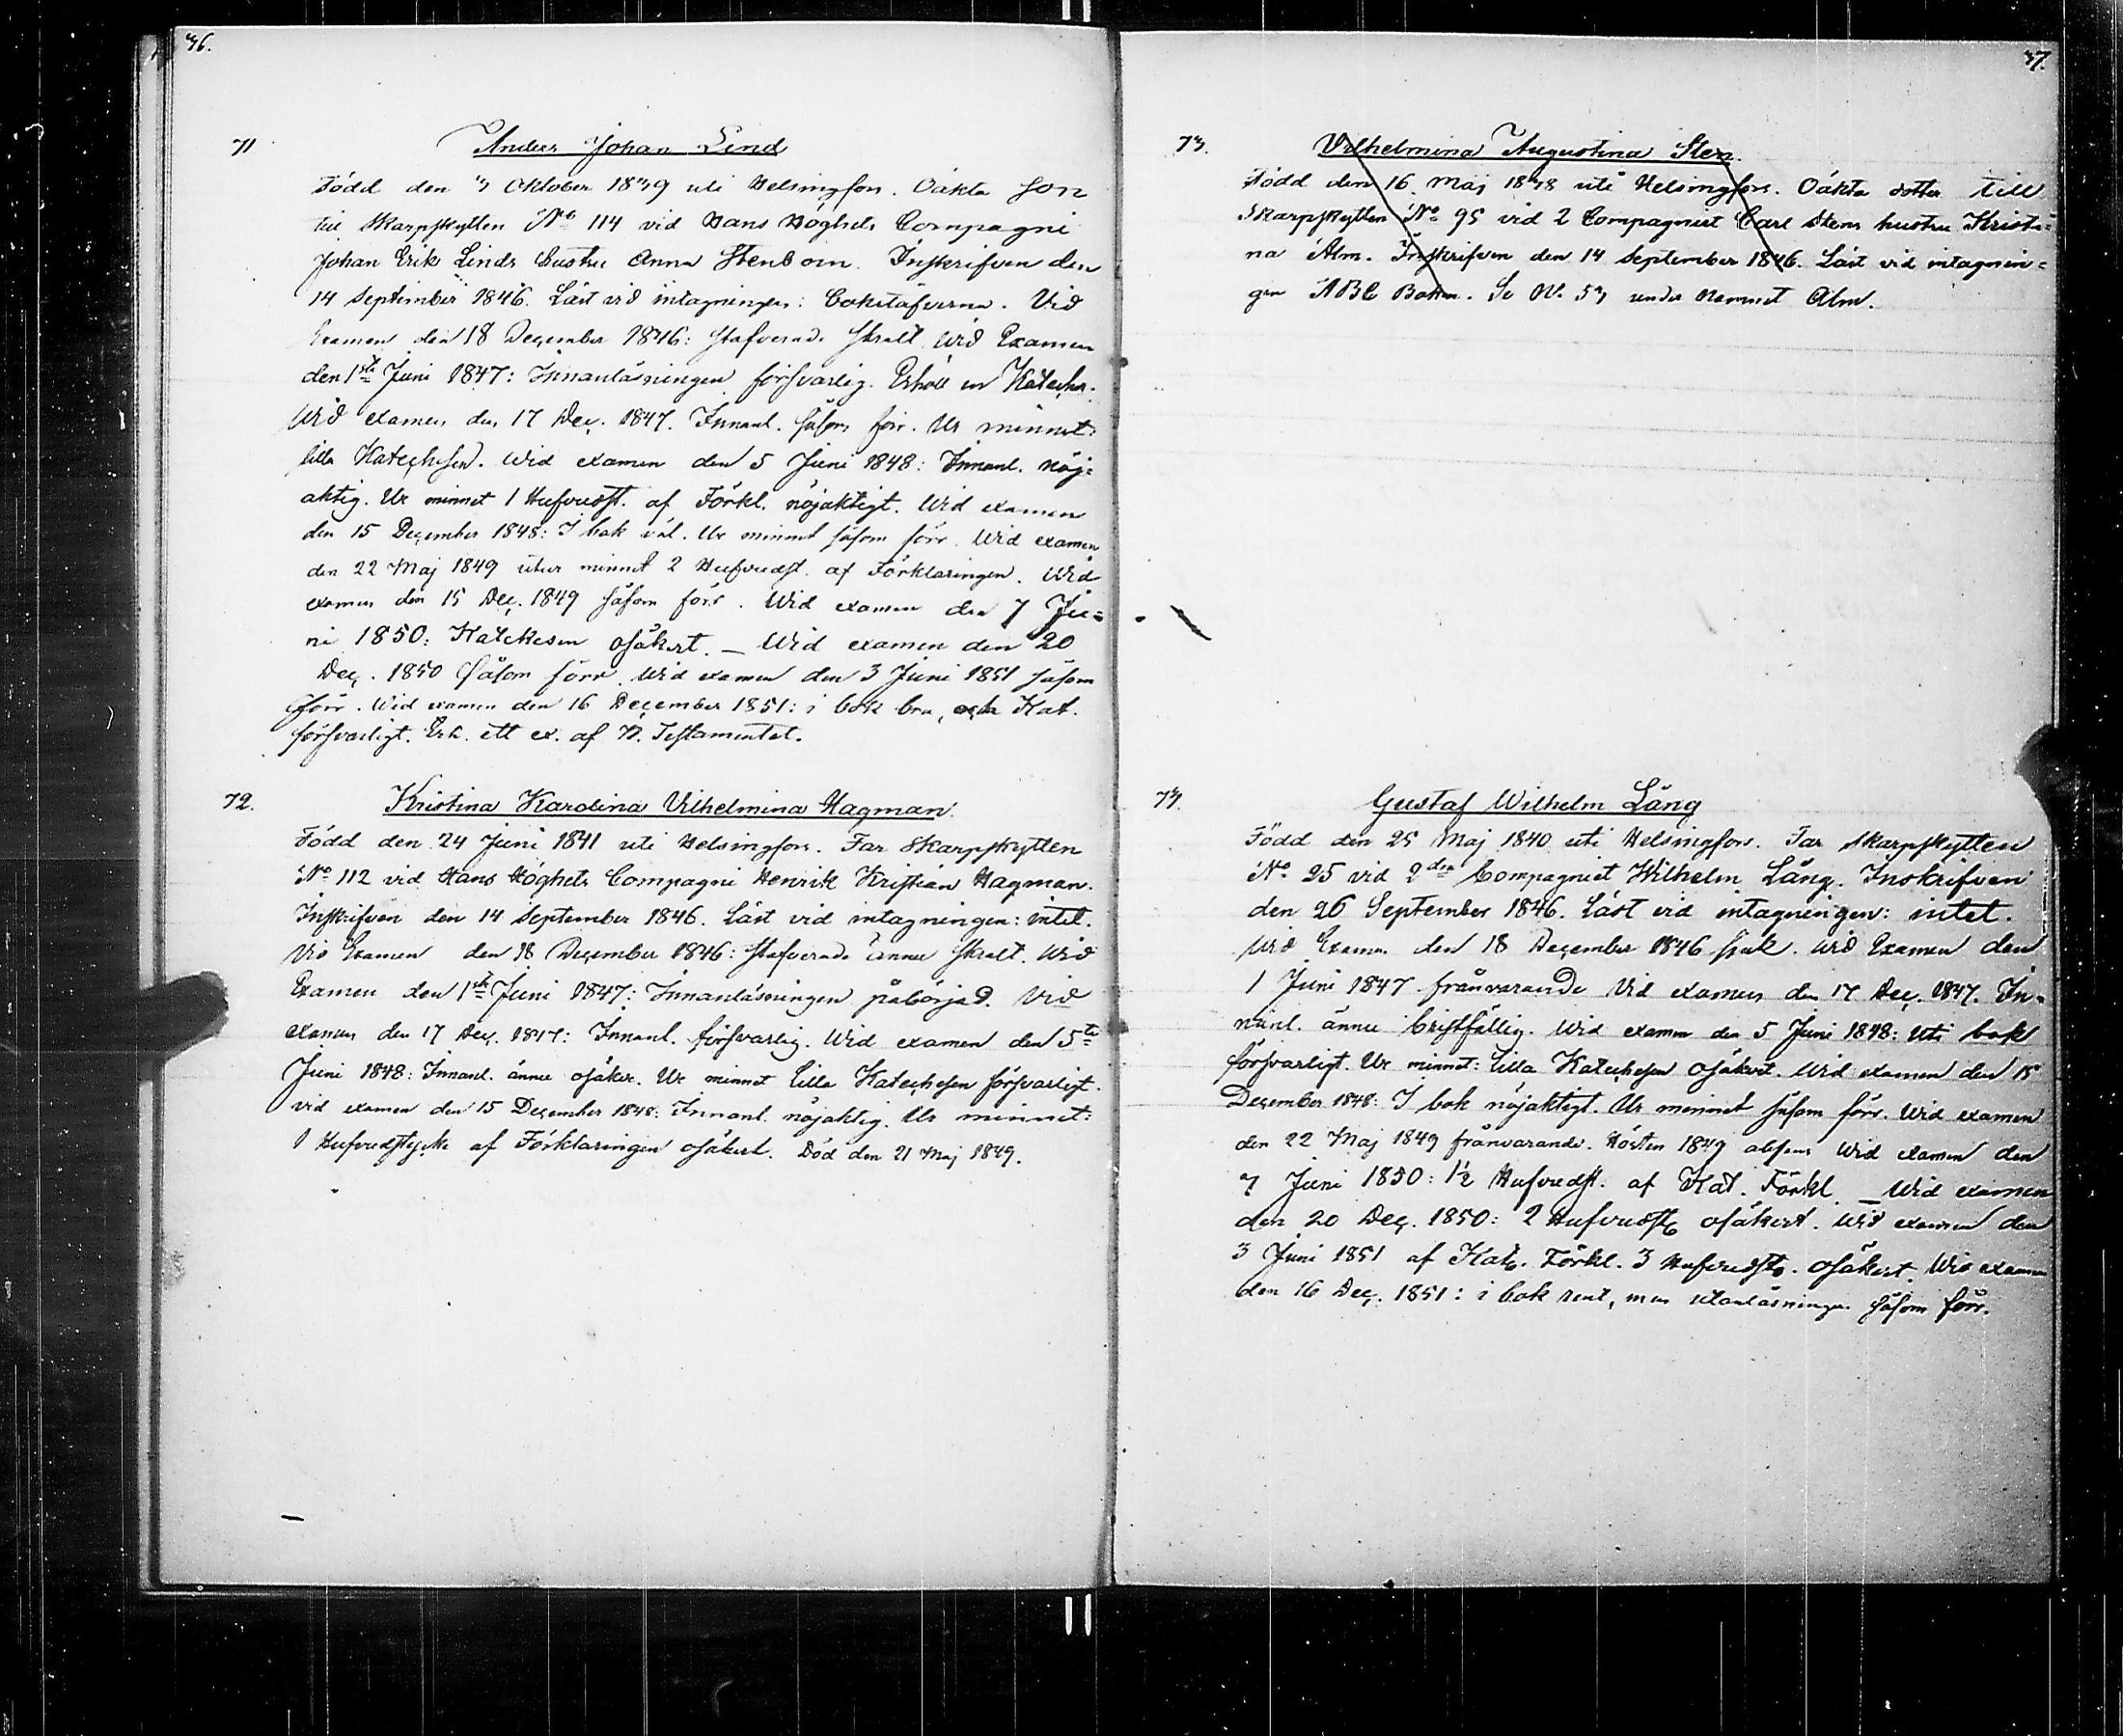 36.
71
Anders Johan Lind
Född den 3 Oktober 1839 uti Helsingfors. Oäkta son
till Skarpskytten No 114 vid Hans Höghets Compagni
Johan Erik Linds hustru Anna Stenbom. Inskrifven den
14 September 1846. Läst vid intagningen: bokstäfverna. Vid
Examen den 18 December 1846: stafverade skralt. Wid Examen
den 1sta Juni 1847: Innanläsningen försvarlig. Erhöll en Kateches.
Wid examen den 17 Dec. 1847. Innanl. såsom förr. Ur minnet:
lilla Katechesen. Wid examen den 5 Juni 1848: Innanl. nöj=
aktig. Ur minnet 1 Hufvudst. af Förkl. nöjaktigt. Wid examen
den 15 December 1848: I bok väl. Ur minnet såsom förr. Wid examen
den 22 Maj 1849 utur minnet 2 Hufvudst. af Förklaringen. Wid
examen den 15 Dec. 1849 såsom förr. Wid examen den 7 Ju=
ni 1850: Katekesen osäkert. – Wid examen den 20
Dec. 1850 såsom förr. Wid examen den 3 Juni 1851 såsom
förr. Wid examen den 16 December 1851: i bok bra, och Kat.
försvarligt. Erh. ett ex. af N. Testamentet.
72.
Kristina Karolina Vilhelmina Hagman.
Född den 24 Juni 1841 uti Helsingfors. Far Skarpskytten
No 112 vid Hans Höghets Compagni Henrik Kristian Hagman.
Inskrifven den 14 September 1846. Läst vid intagningen: intet.
Vid Examen den 18 December 1846: stafverade ännu skralt. Wid
Examen den 1sta Juni 1847: Innanläsningen påbörjad. Vid
examen den 17 Dec. 1847: Innanl. försvarlig. Wid examen den 5te
Juni 1848: Innanl. ännu osäker. Ur minnet lilla Katechesen försvarligt.
vid examen den 15 December 1848: Innanl. nöjaktig. Ur minnet:
1 Hufvudstycke af Förklaringen osäkert. Död den 21 Maj 1849.
37.
73.
Vilhelmina Augustina Sten.
Född den 16 Maj 1838 uti Helsingfors. Oäkta dotter till
Skarpskytten No 95 vid 2 Compagniet Carl Stens hustru Kristi=
na Alm. Inskrifven den 14 September 1846. Läst vid intagnin=
gen ABC Boken. Se N. 53 under namnet Alm.
74.
Gustaf Wilhelm Lång
Född den 25 Maj 1840 uti Helsingfors. Far Skarpskytten
No 25 vid 2dra Compagniet Wilhelm Lång. Inskrifven
den 26 September 1846. Läst vid intagningen: intet.
Wid Examen den 18 December 1846 sjuk. Wid Examen den
1 Juni 1847 frånvarande Vid examen den 17 Dec. 1847. In=
nanl. ännu bristfällig. Wid examen den 5 Juni 1848: Uti bok
försvarligt. Ur minnet: lilla Katechesen osäkert. Wid examen den 15
December 1848: I bok nöjaktigt. Ur minnet såsom förr. Wid examen
den 22 Maj 1849 frånvarande. Hösten 1849 absens Wid examen den
7 Juni 1850: 1½ Hufvudst. af Kat. Förkl. – Wid examen
den 20 Dec. 1850: 2 Hufvudst. osäkert. Wid examen den
3 Juni 1851 af Kat. Förkl. 3 Hufvudst. osäkert. Wid examen
den 16 Dec. 1851: i bok rent, men utanläsningen såsom förr.